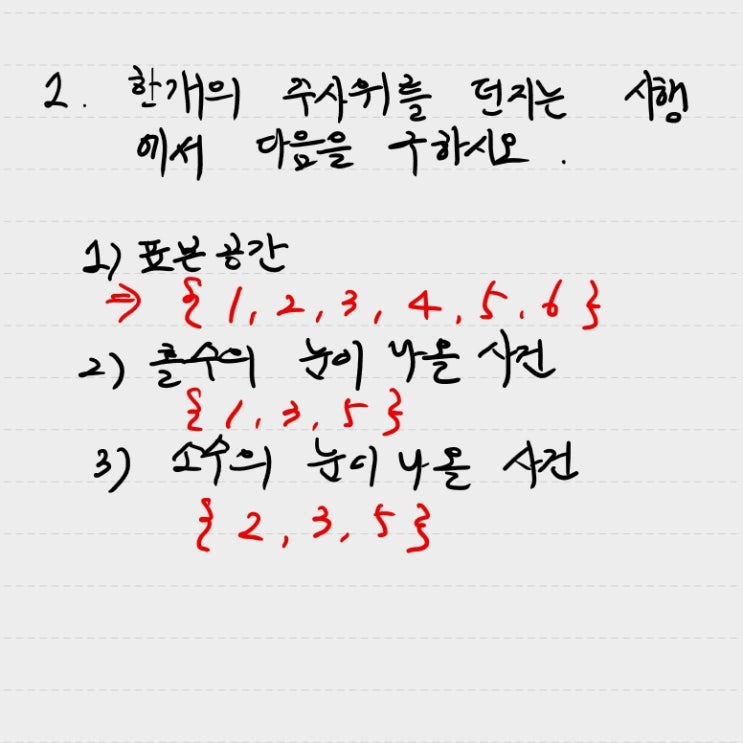 2. 한개의 주사위를 던지는 시행
에서 다음을 구하시오.
1) 표본공간
⇒ { 1, 2, 3, 4, 5, 6 }
2) 홀수의 눈이 나올 사건
{ 1, 3, 5 }
3) 소수의 눈이 나올 사건
{ 2, 3, 5 }